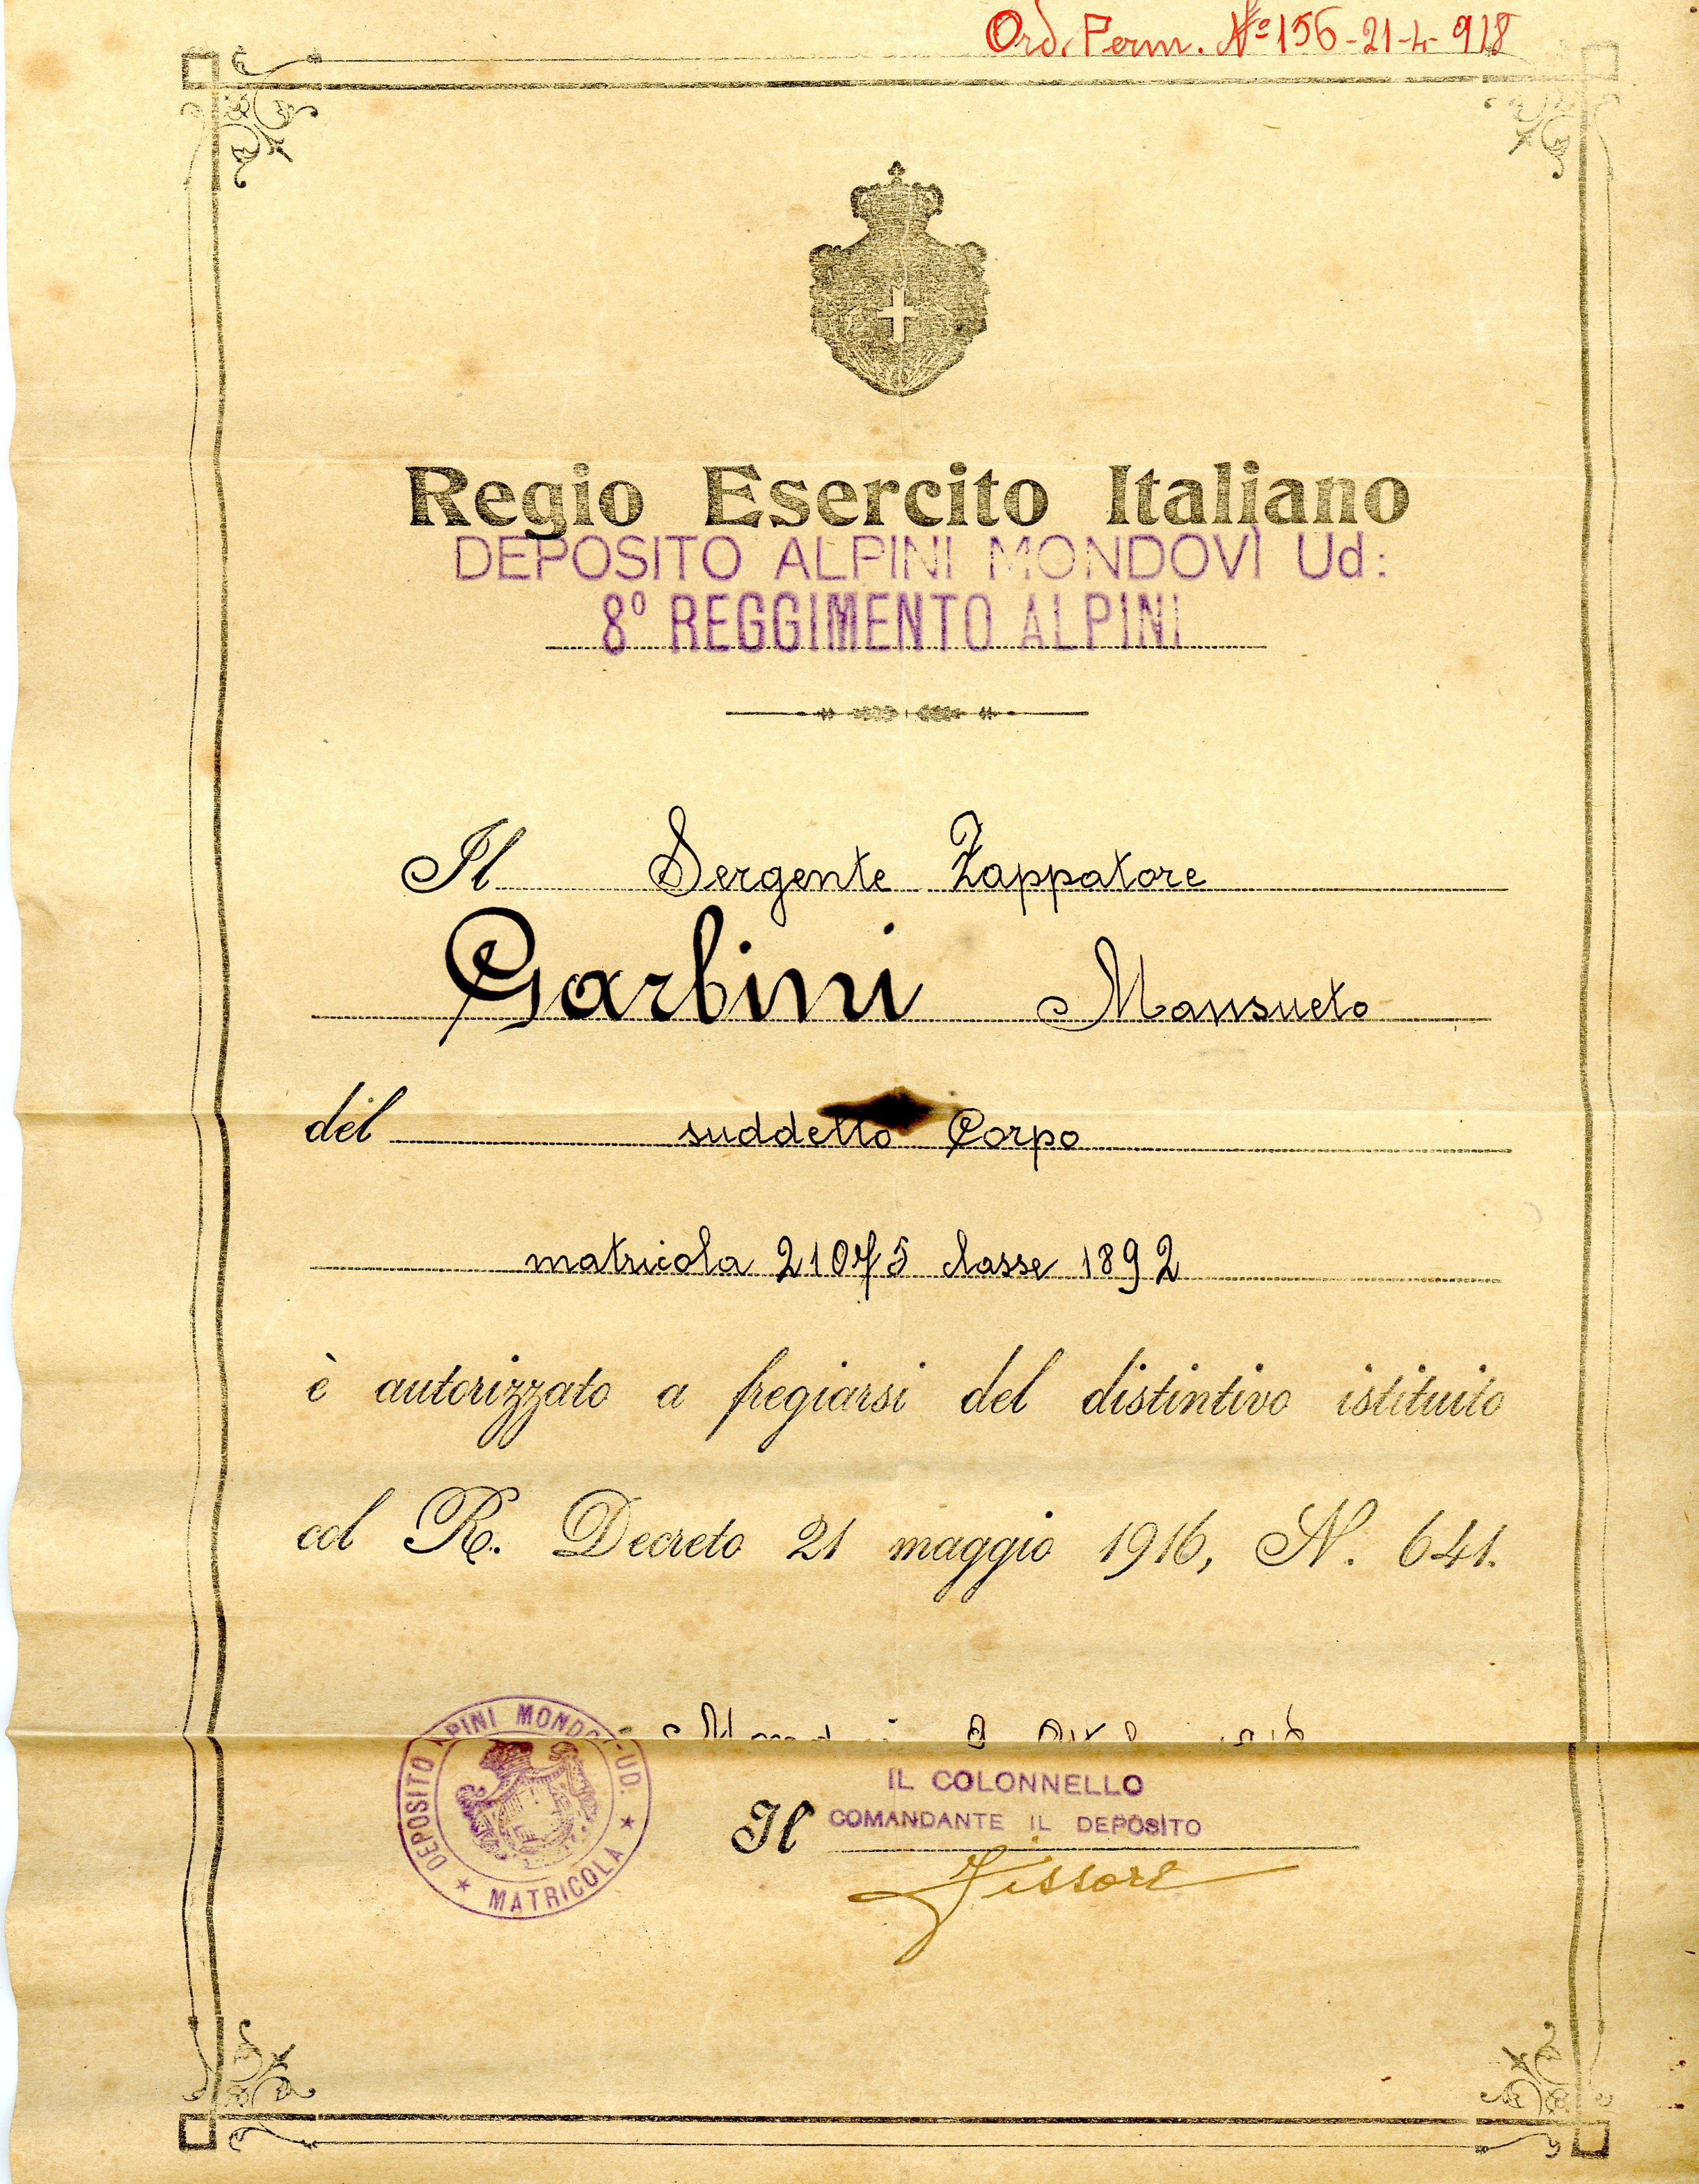 Ord. Perm. Nº 156-21-4-918
Regio Esercito Italiano
DEPOSITO ALPINI MONDOVÌ Ud:
8º REGGIMENTO ALPINI
Il Sergente Zappatore
Garbini Mansueto
del suddetto Corpo
matricola 21075 classe 1892
è autorizzato a fregiarsi del distintivo istituito
col R. Decreto 21 maggio 1916, N. 641.
DEPOSITO ALPINI MONDOVÌ-UD. ★ MATRICOLA ★
IL COLONNELLO
Il COMANDANTE IL DEPOSITO
Fissore